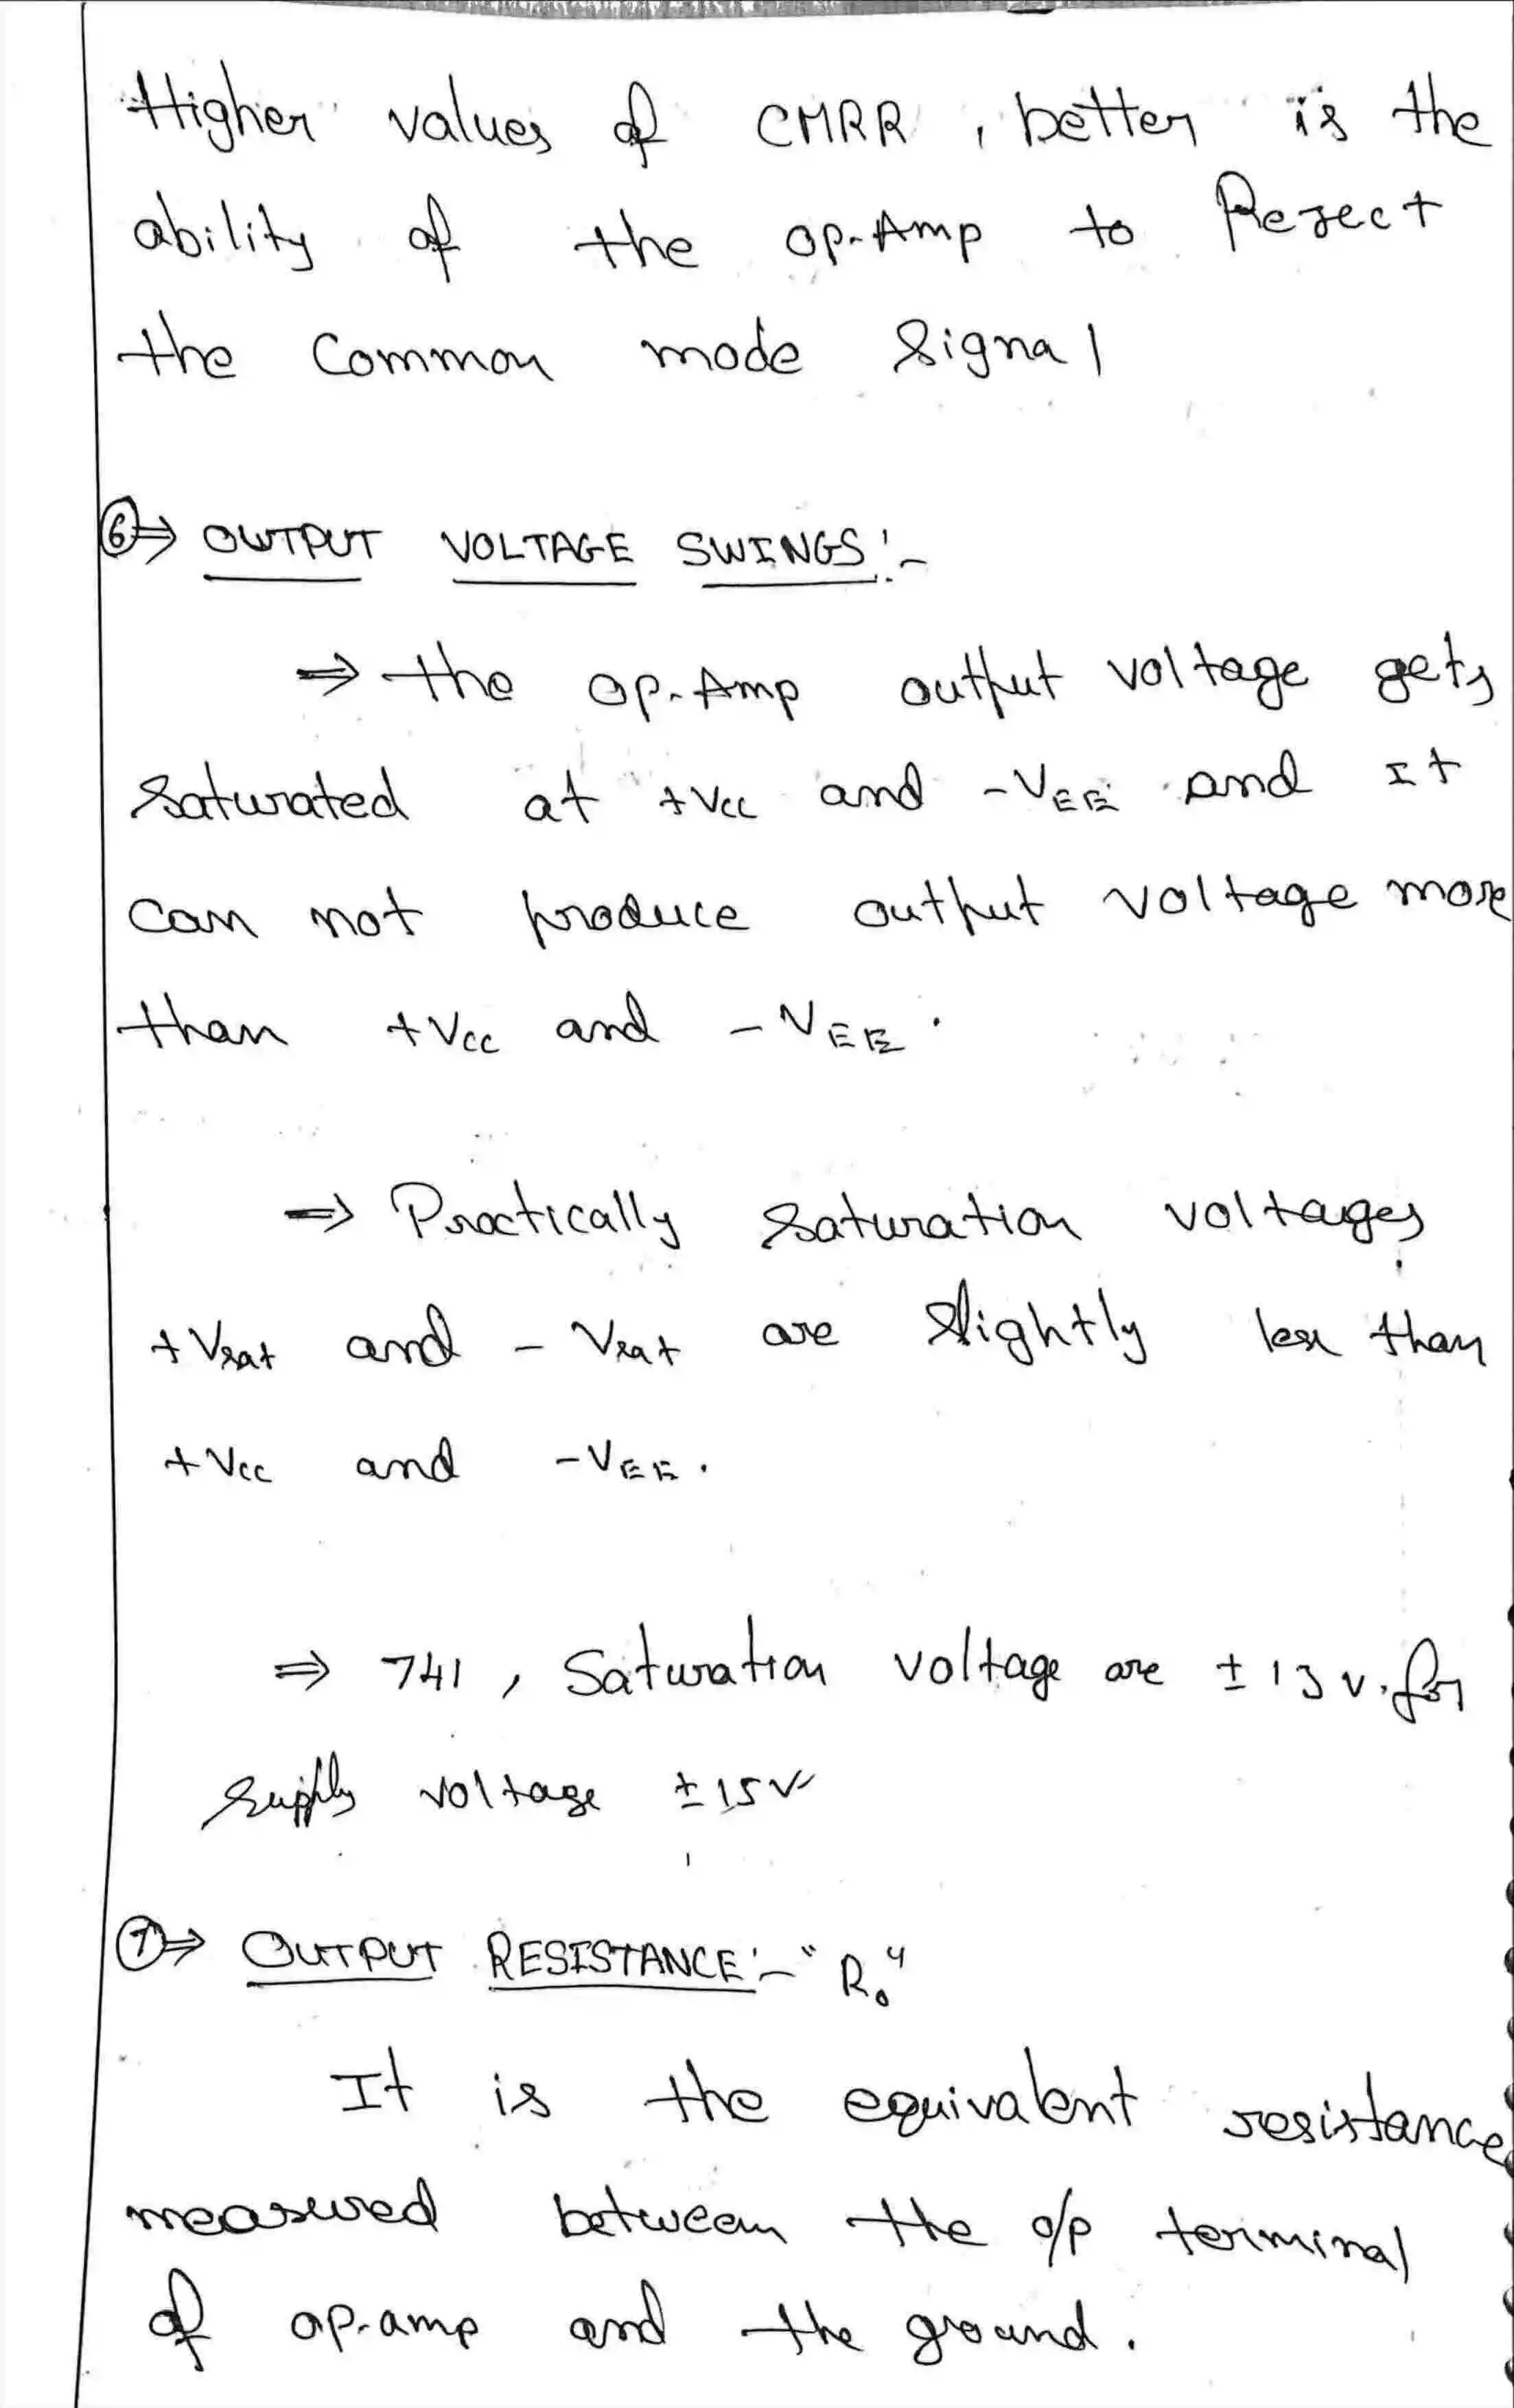 Higher values of CMRR, better is the
ability of the op-Amp to Reject
the Common mode Signal
⑥⇒ OUTPUT VOLTAGE SWINGS:-
⇒ the op-Amp output voltage gets
Saturated at +Vcc and -VEE and It
can not produce output voltage more
than +Vcc and -VEE.
⇒ Practically saturation voltages
+Vsat and -Vsat are slightly less than
+Vcc and -VEE.
⇒ 741, Saturation voltage are ±13 v. for
supply voltage ±15V
⑦⇒ OUTPUT RESISTANCE:- "Ro"
It is the equivalent resistance
measured between the o/p terminal
of op-amp and the ground.